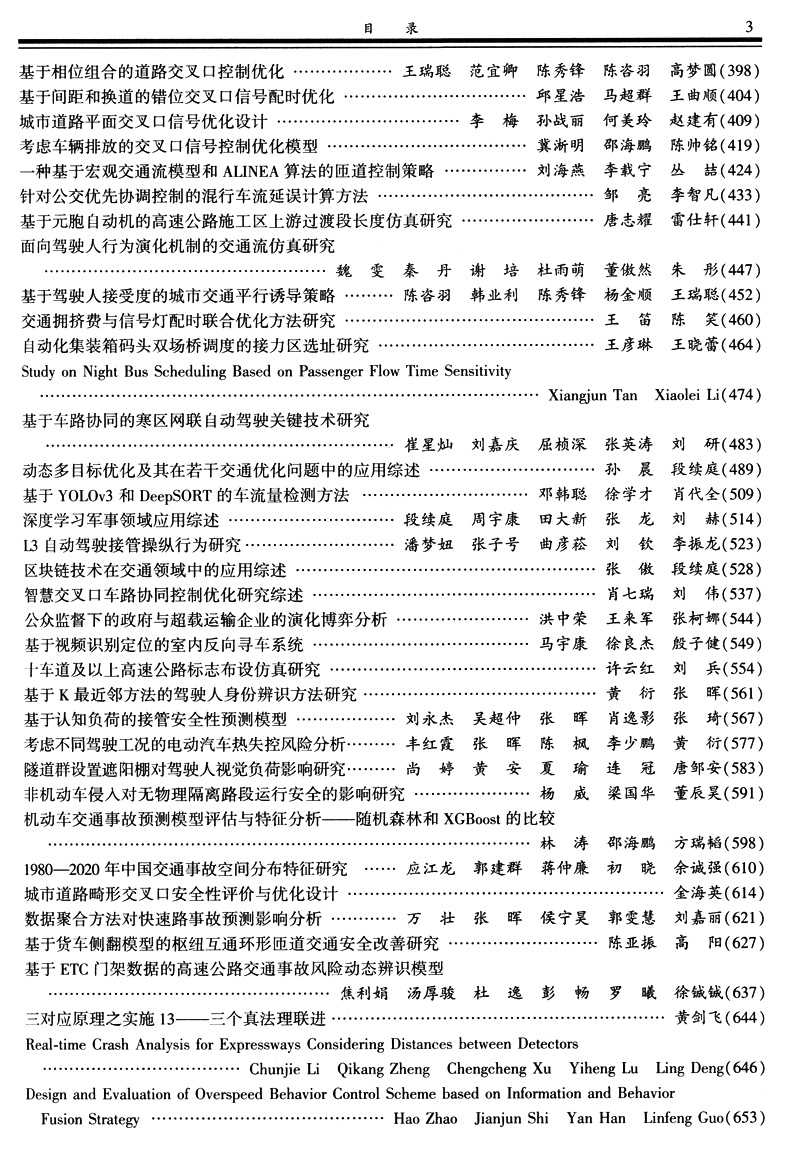 目 录 3
基于相位组合的道路交叉口控制优化 ……………… 王瑞聪 范宜卿 陈秀锋 陈咨羽 高梦圆(398)
基于间距和换道的错位交叉口信号配时优化 …………………………… 邱星浩 马超群 王曲顺(404)
城市道路平面交叉口信号优化设计 …………………………… 李 梅 孙战丽 何美玲 赵建有(409)
考虑车辆排放的交叉口信号控制优化模型 …………………………… 冀浙明 邵海鹏 陈帅铭(419)
一种基于宏观交通流模型和 ALINEA 算法的匝道控制策略 …………… 刘海燕 李载宁 丛 喆(424)
针对公交优先协调控制的混行车流延误计算方法 ………………………………… 邹 亮 李智凡(433)
基于元胞自动机的高速公路施工区上游过渡段长度仿真研究 …………………… 唐志耀 雷仕轩(441)
面向驾驶人行为演化机制的交通流仿真研究
…………………………………………… 魏 雯 秦 丹 谢 培 杜雨萌 董傲然 朱 彤(447)
基于驾驶人接受度的城市交通平行诱导策略 ……… 陈咨羽 韩业利 陈秀锋 杨金顺 王瑞聪(452)
交通拥挤费与信号灯配时联合优化方法研究 ……………………………………… 王 笛 陈 笑(460)
自动化集装箱码头双场桥调度的接力区选址研究 ………………………………… 王彦琳 王晓蕾(464)
Study on Night Bus Scheduling Based on Passenger Flow Time Sensitivity
……………………………………………………………………………… Xiangjun Tan Xiaolei Li(474)
基于车路协同的寒区网联自动驾驶关键技术研究
……………………………………………………… 崔星灿 刘嘉庆 屈桢深 张英涛 刘 研(483)
动态多目标优化及其在若干交通优化问题中的应用综述 ………………………… 孙 晨 段续庭(489)
基于 YOLOv3 和 DeepSORT 的车流量检测方法 ………………………… 邓韩聪 徐学才 肖代全(509)
深度学习军事领域应用综述 ………………………… 段续庭 周宇康 田大新 张 龙 刘 赫(514)
L3 自动驾驶接管操纵行为研究……………………… 潘梦妞 张子号 曲彦菘 刘 钦 李振龙(523)
区块链技术在交通领域中的应用综述 ……………………………………………… 张 傲 段续庭(528)
智慧交叉口车路协同控制优化研究综述 …………………………………………… 肖七瑞 刘 伟(537)
公众监督下的政府与超载运输企业的演化博弈分析 …………………… 洪中荣 王来军 张柯娜(544)
基于视频识别定位的室内反向寻车系统 ………………………………… 马宇康 徐良杰 殷子健(549)
十车道及以上高速公路标志布设仿真研究 ………………………………………… 许云红 刘 兵(554)
基于 K 最近邻方法的驾驶人身份辨识方法研究 …………………………………… 黄 衍 张 晖(561)
基于认知负荷的接管安全性预测模型 ……………… 刘永杰 吴超仲 张 晖 肖逸影 张 琦(567)
考虑不同驾驶工况的电动汽车热失控风险分析……… 丰红霞 张 晖 陈 枫 李少鹏 黄 衍(577)
隧道群设置遮阳棚对驾驶人视觉负荷影响研究……… 尚 婷 黄 安 夏 瑜 连 冠 唐邹安(583)
非机动车侵入对无物理隔离路段运行安全的影响研究 ………………… 杨 威 梁国华 董辰昊(591)
机动车交通事故预测模型评估与特征分析——随机森林和 XGBoost 的比较
…………………………………………………………………………… 林 涛 邵海鹏 方瑞韬(598)
1980—2020 年中国交通事故空间分布特征研究 …… 应江龙 郭建群 蒋仲廉 初 晓 余诚强(610)
城市道路畸形交叉口安全性评价与优化设计 ………………………………………………… 金海英(614)
数据聚合方法对快速路事故预测影响分析 ………… 万 壮 张 晖 侯宁昊 郭雯慧 刘嘉丽(621)
基于货车侧翻模型的枢纽互通环形匝道交通安全改善研究 ……………………… 陈亚振 高 阳(627)
基于 ETC 门架数据的高速公路交通事故风险动态辨识模型
…………………………………………… 焦利娟 汤厚骏 杜 逸 彭 畅 罗 曦 徐铖铖(637)
三对应原理之实施 13——三个真法理联进 …………………………………………………… 黄剑飞(644)
Real-time Crash Analysis for Expressways Considering Distances between Detectors
……………………………… Chunjie Li Qikang Zheng Chengcheng Xu Yiheng Lu Ling Deng(646)
Design and Evaluation of Overspeed Behavior Control Scheme based on Information and Behavior
Fusion Strategy …………………………………… Hao Zhao Jianjun Shi Yan Han Linfeng Guo(653)